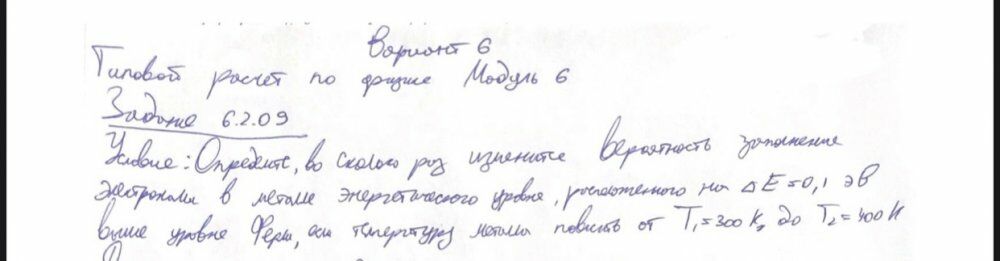 Вариант 6
Типовой расчет по физике Модуль 6
Задание 6.2.09
Условие: Определите, во сколько раз изменится вероятность заполнения
электронами в металле энергетического уровня, расположенного на ΔE = 0,1 эВ
выше уровня Ферми, если температуру металла повысить от T₁ = 300 К, до T₂ = 400 К